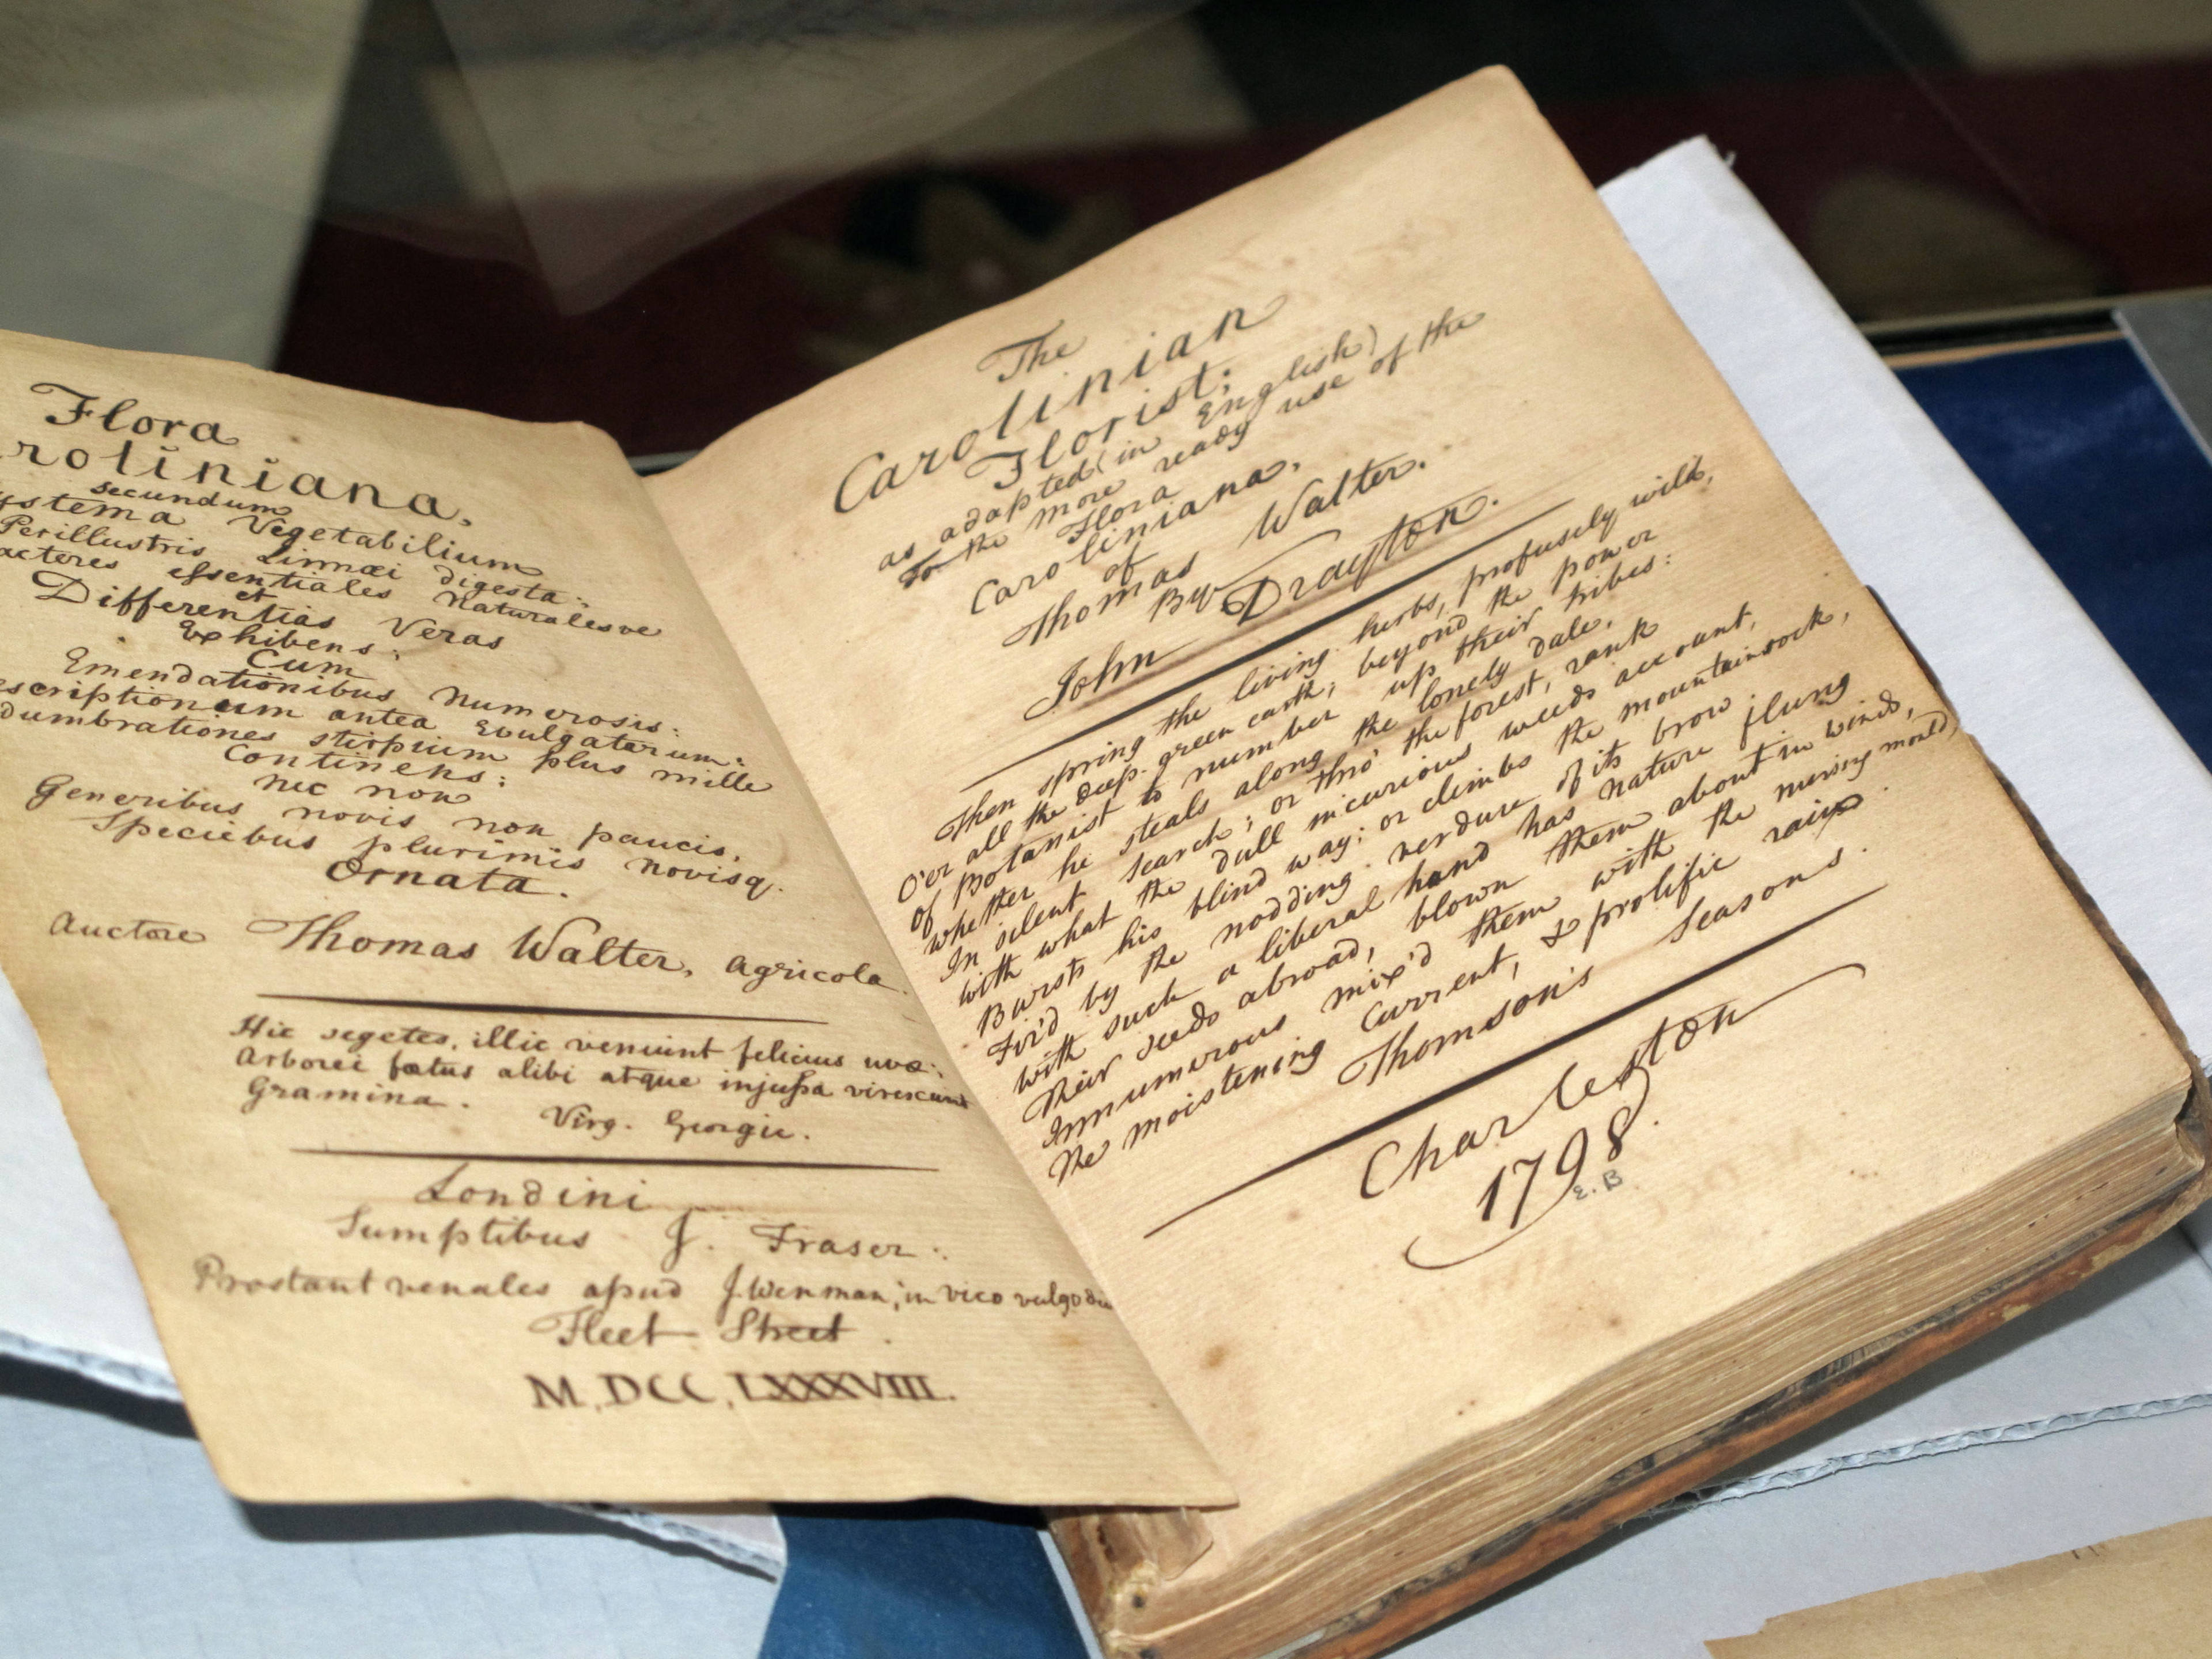 Flora
roliniana,
secundum
ystema Vegetabilium
Perillustris Linnæi digesta:
acteres essentiales Naturalesve
et
Differentias Veras
Exhibens;
Cum
Emendationibus numerosis:
escriptionum antea Evulgatarum:
dumbrationes stirpium plus mille
Continens:
nec non
Generibus novis non paucis,
Speciebus plurimis novisq.
Ornata.
Auctore Thomas Walter, Agricola.
Hic segetes, illic veniunt felicius uvæ:
Arborei fœtus alibi atque injussa virescunt
Gramina. Virg. Georgic.
Londini
Sumptibus J. Fraser.
Prostant venales apud J. Wenman, in vico vulgo
Fleet Street.
M,DCC,LXXXVIII.
The
Carolinian
Florist;
as adapted (in English)
To the more ready use of the
Flora
Caroliniana,
of
Thomas Walter.
By
John Drayton.
Then spring the living herbs, profusely wild,
O'er all the deep-green earth, beyond the power
Of Botanist to number up their tribes:
Whether he steals along the lonely dale,
In silent search; or thro' the forest, rank
With what the dull incurious weeds account,
Bursts his blind way; or climbs the mountain rock,
Fir'd by the nodding verdure of its brow
With such a liberal hand has nature flung
Their seeds abroad, blown them about in winds,
Innumerous mix'd them with the nursing mould,
The moistening current, & prolific rain.
Thomson's Seasons.
Charleston
1798.
E. B.